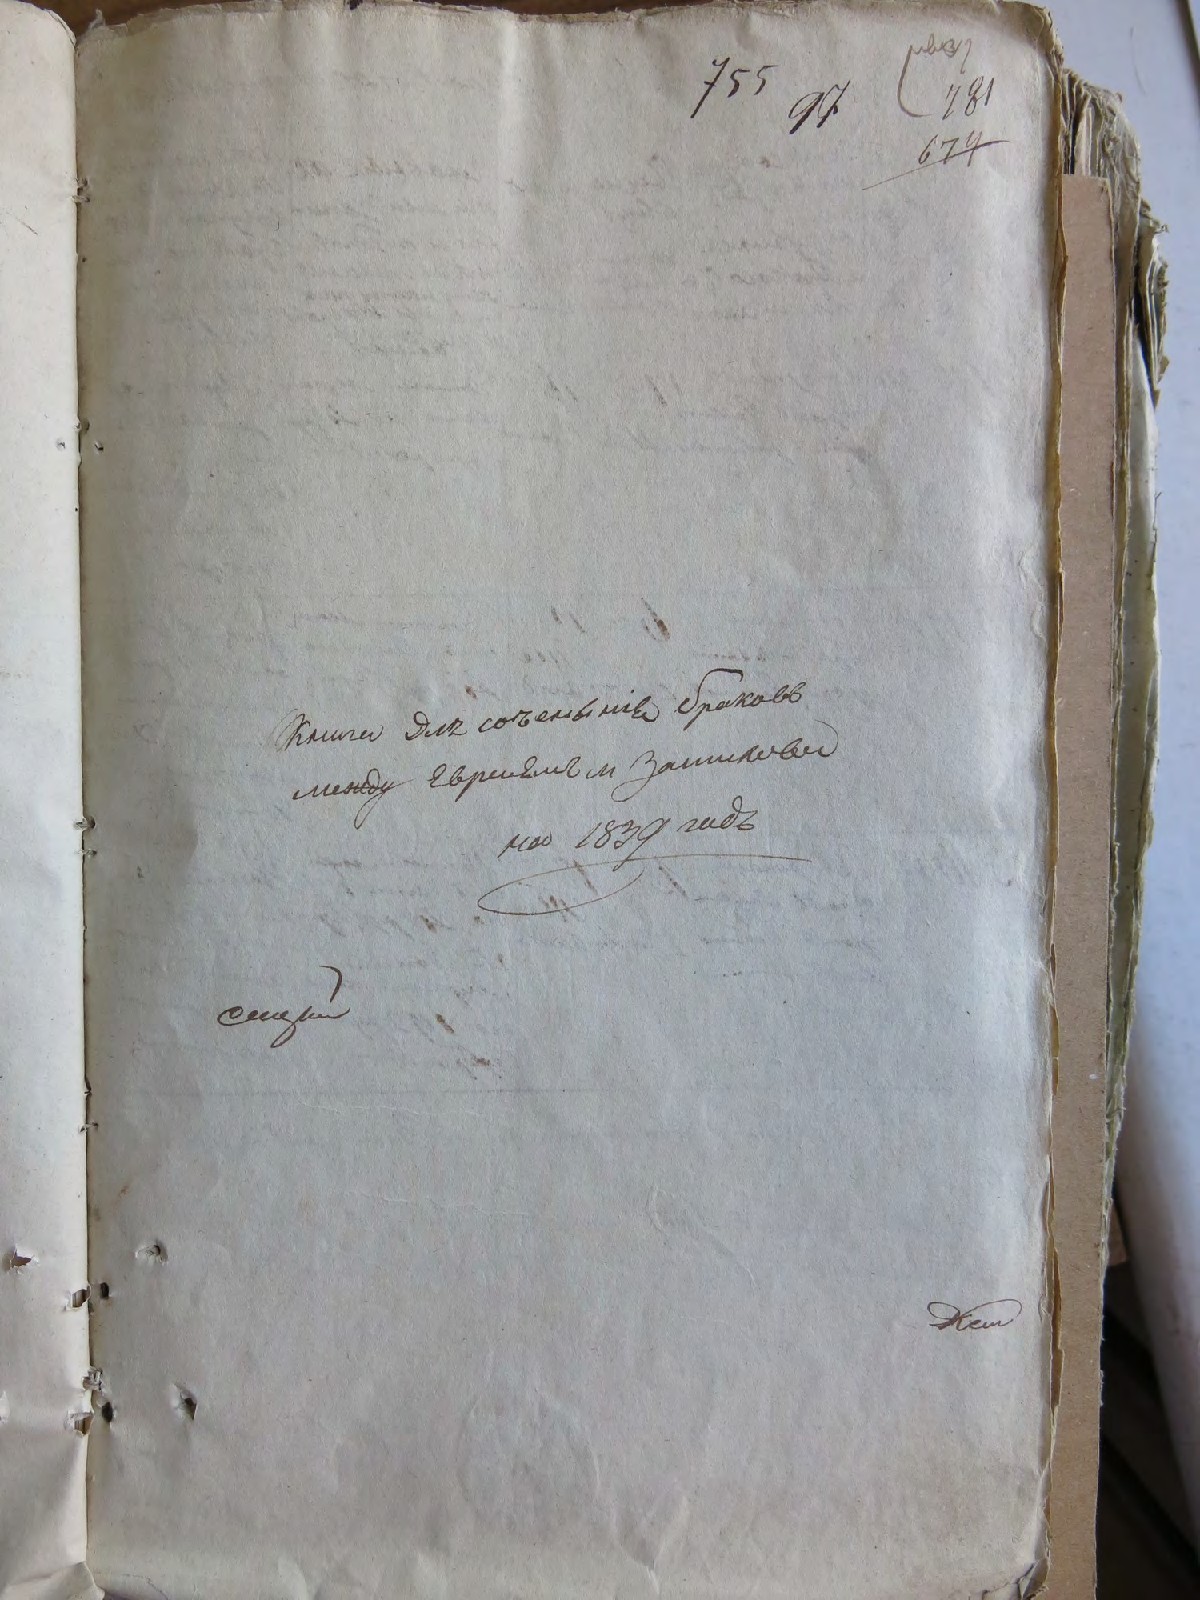 755 97 781
674
Книга для сочетыніе браковъ
между Евреями м Зашкова
на 1839 годъ